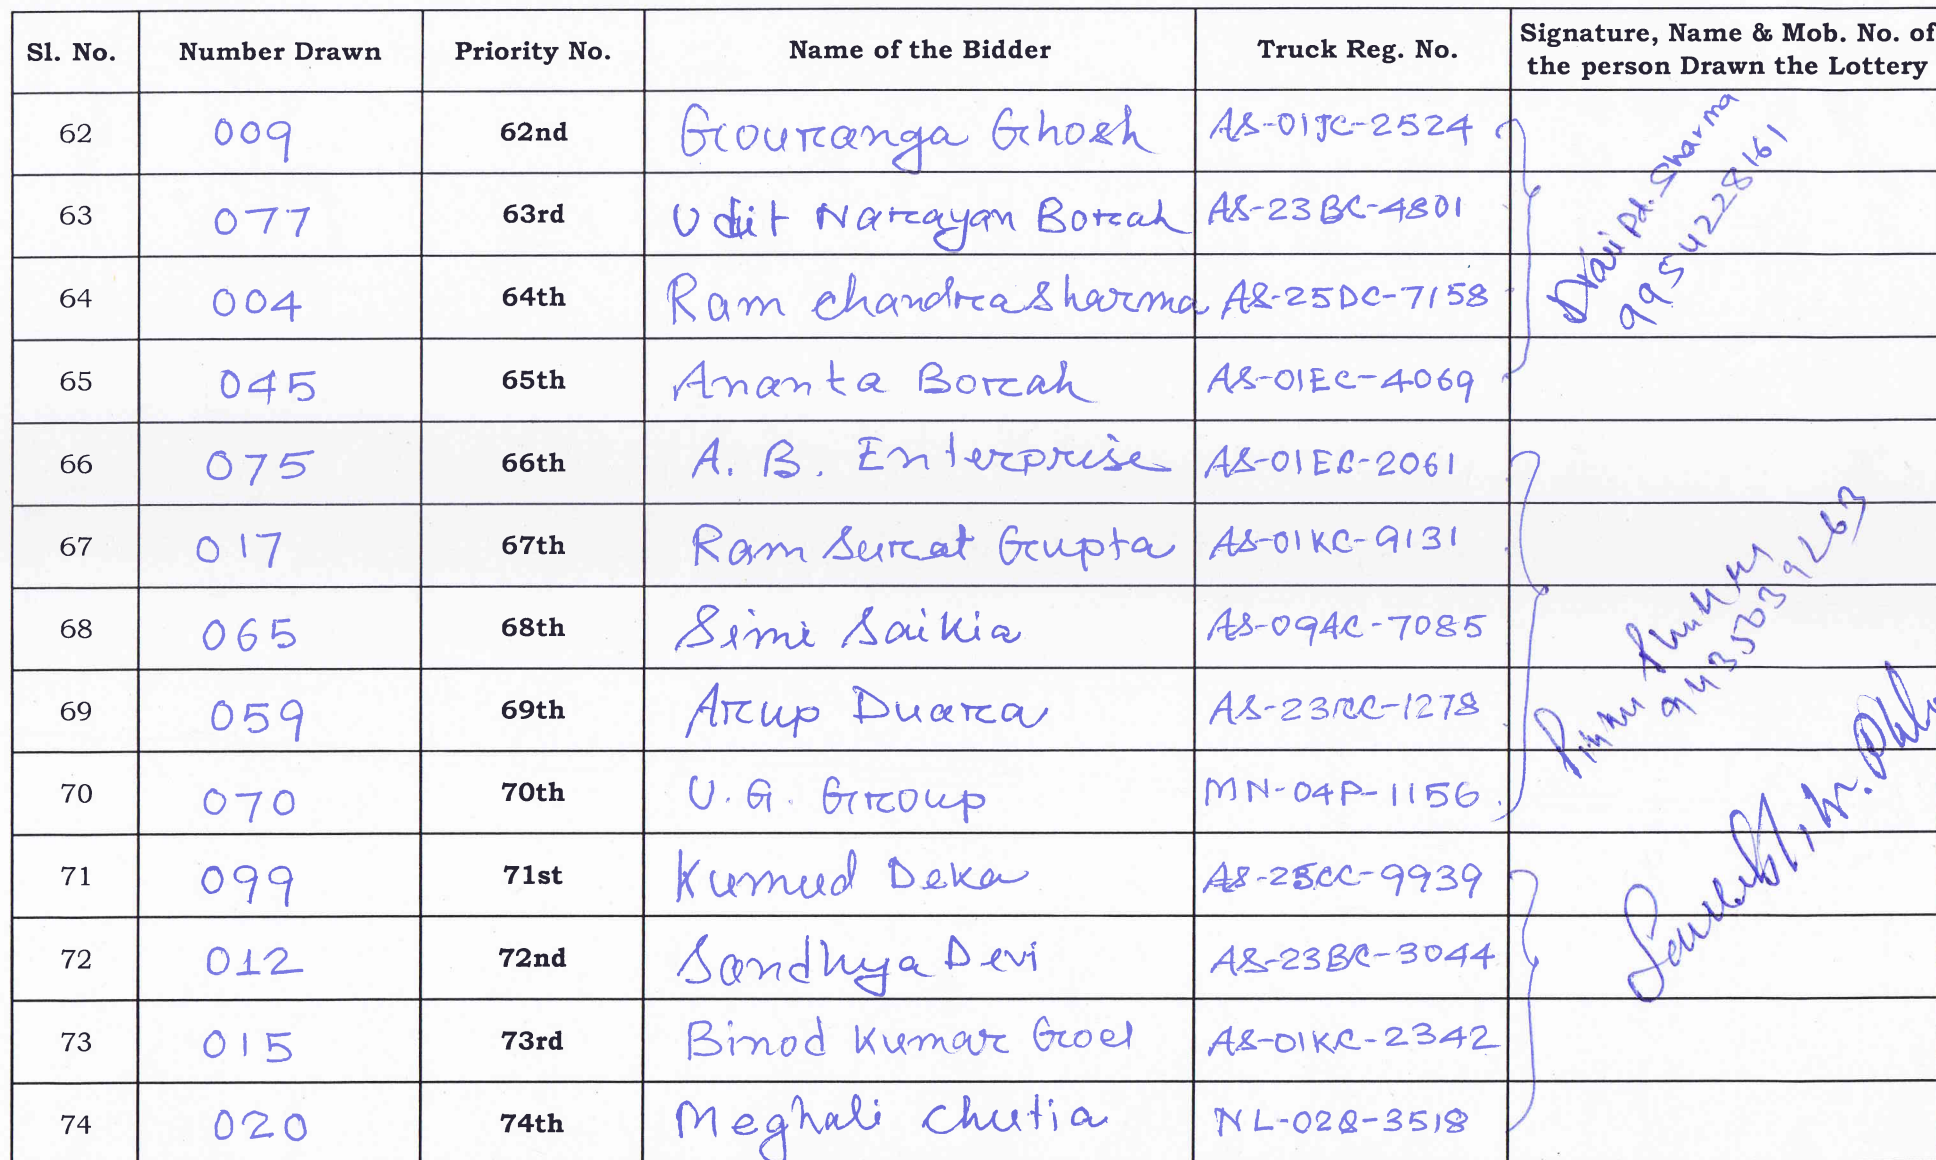 Sl. No. Number Drawn Priority No. Name of the Bidder Truck Reg. No. Signature, Name & Mob. No. of the person Drawn the Lottery
62 009 62nd Gouranga Ghosh AS-01JC-2524
63 077 63rd Udit Narayan Borah AS-23BC-4801
64 004 64th Ram Chandra Sharma AS-25DC-7158
65 045 65th Ananta Borah AS-01EC-4069
Pd. Sharma
9954228161
66 075 66th A. B. Enterprise AS-01EC-2061
67 017 67th Ram Surat Gupta AS-01KC-9131
68 065 68th Simi Saikia AS-09AC-7085
69 059 69th Arup Duara AS-23CC-1278
70 070 70th U.G. Group MN-04P-1156
9435039263
71 099 71st Kumud Deka AS-25CC-9939
72 012 72nd Sandhya Devi AS-23BC-3044
73 015 73rd Binod Kumar Goel AS-01KC-2342
74 020 74th Meghali Chutia NL-02Q-3518